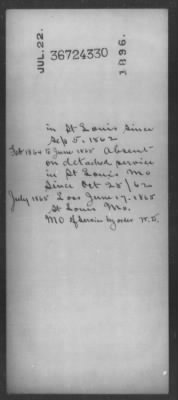 JUL. 22.
36724330
1896.
in St Louis since
Sep 5, 1862
Feb 1864 to June 1865 absent
on detached service
in St Louis Mo
Since Oct 28/62
July 1865 Loss June 17. 1865
St Louis Mo.
MO of Service by order W.D.